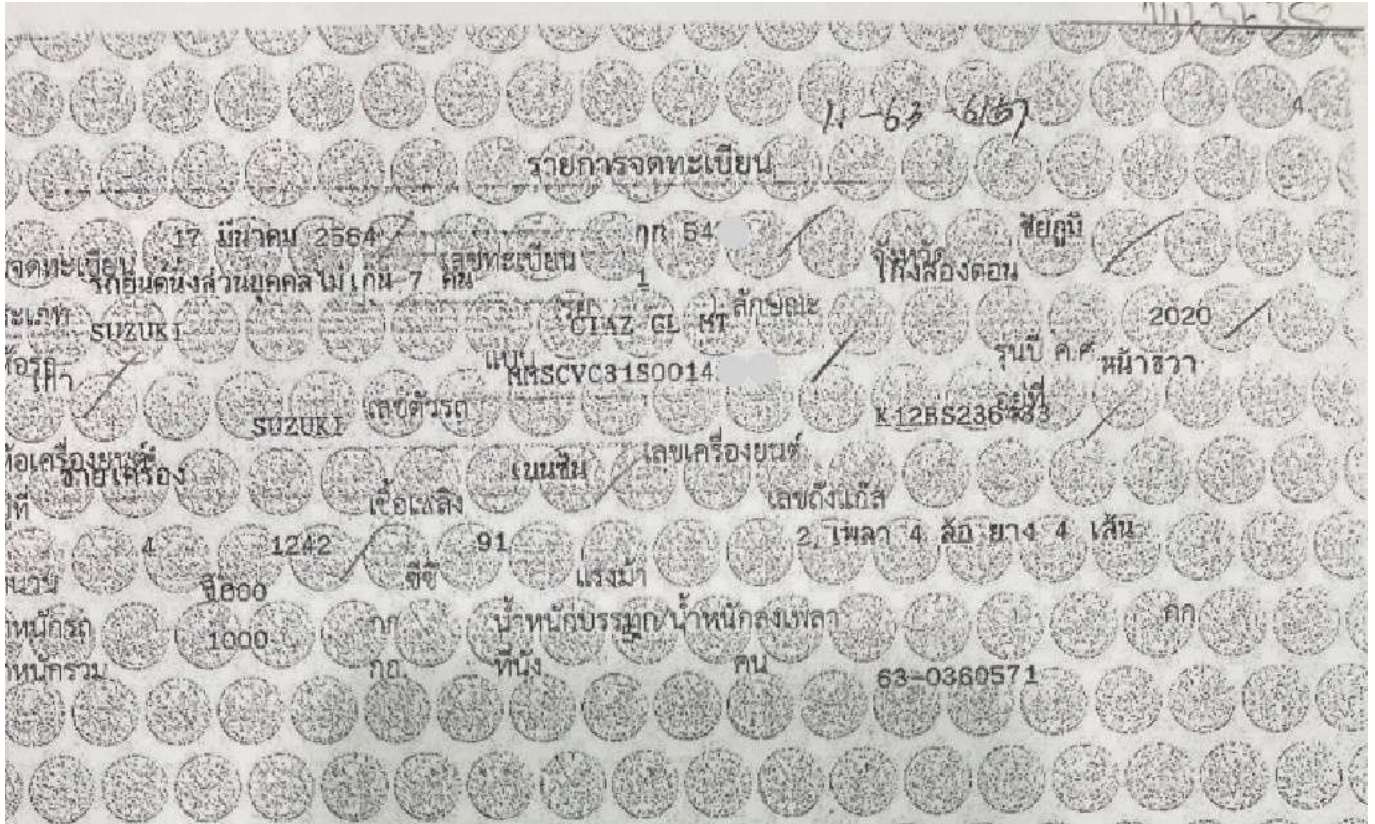 11-63-6167
รายการจดทะเบียน
17 มีนาคม 2564 กก 64 ชัยภูมิ
จดทะเบียน เลขทะเบียน จังหวัด
รถยนต์นั่งส่วนบุคคลไม่เกิน 7 คน 1 เก๋งสองตอน
ลักษณะ
SUZUKI CIAZ GL MT 2020
แบบ รุ่นปี ค.ศ.
เทา MMSCVC31S0014 หน้าขวา
เลขตัวรถ อยู่ที่
SUZUKI K12BS236433
เครื่องยนต์ เลขเครื่องยนต์
ซ้ายเครื่อง เบนซิน
เชื้อเพลิง เลขถังแก๊ส
4 1242 91 2 เพลา 4 ล้อ ยาง 4 เส้น
ซีซี แรงม้า
น้ำหนักบรรทุก/น้ำหนักลงเพลา กก
1000
กก. ที่นั่ง คน
63-0360571